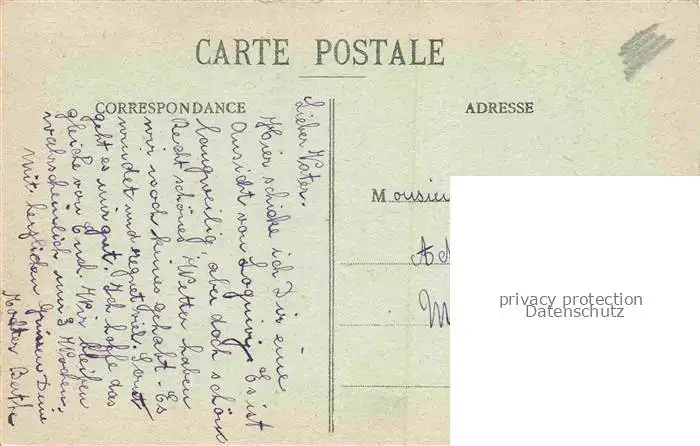 CARTE POSTALE
CORRESPONDANCE
ADRESSE
Lieber Vater.
Hier schicke ich Dir eine
Ansicht von Loguivy. Es ist
langweilig, aber doch schön
Recht schönes Wetter haben
wir noch keines gehabt. Es
windet und regnet viel. Sonst
geht es mir gut. Ich hoffe das
gleiche von Euch. Wir bleiben
wahrscheinlich nur 3 Wochen.
Mit herzlichen Grüssen Deine
Monsieur
privacy protection
Datenschutz